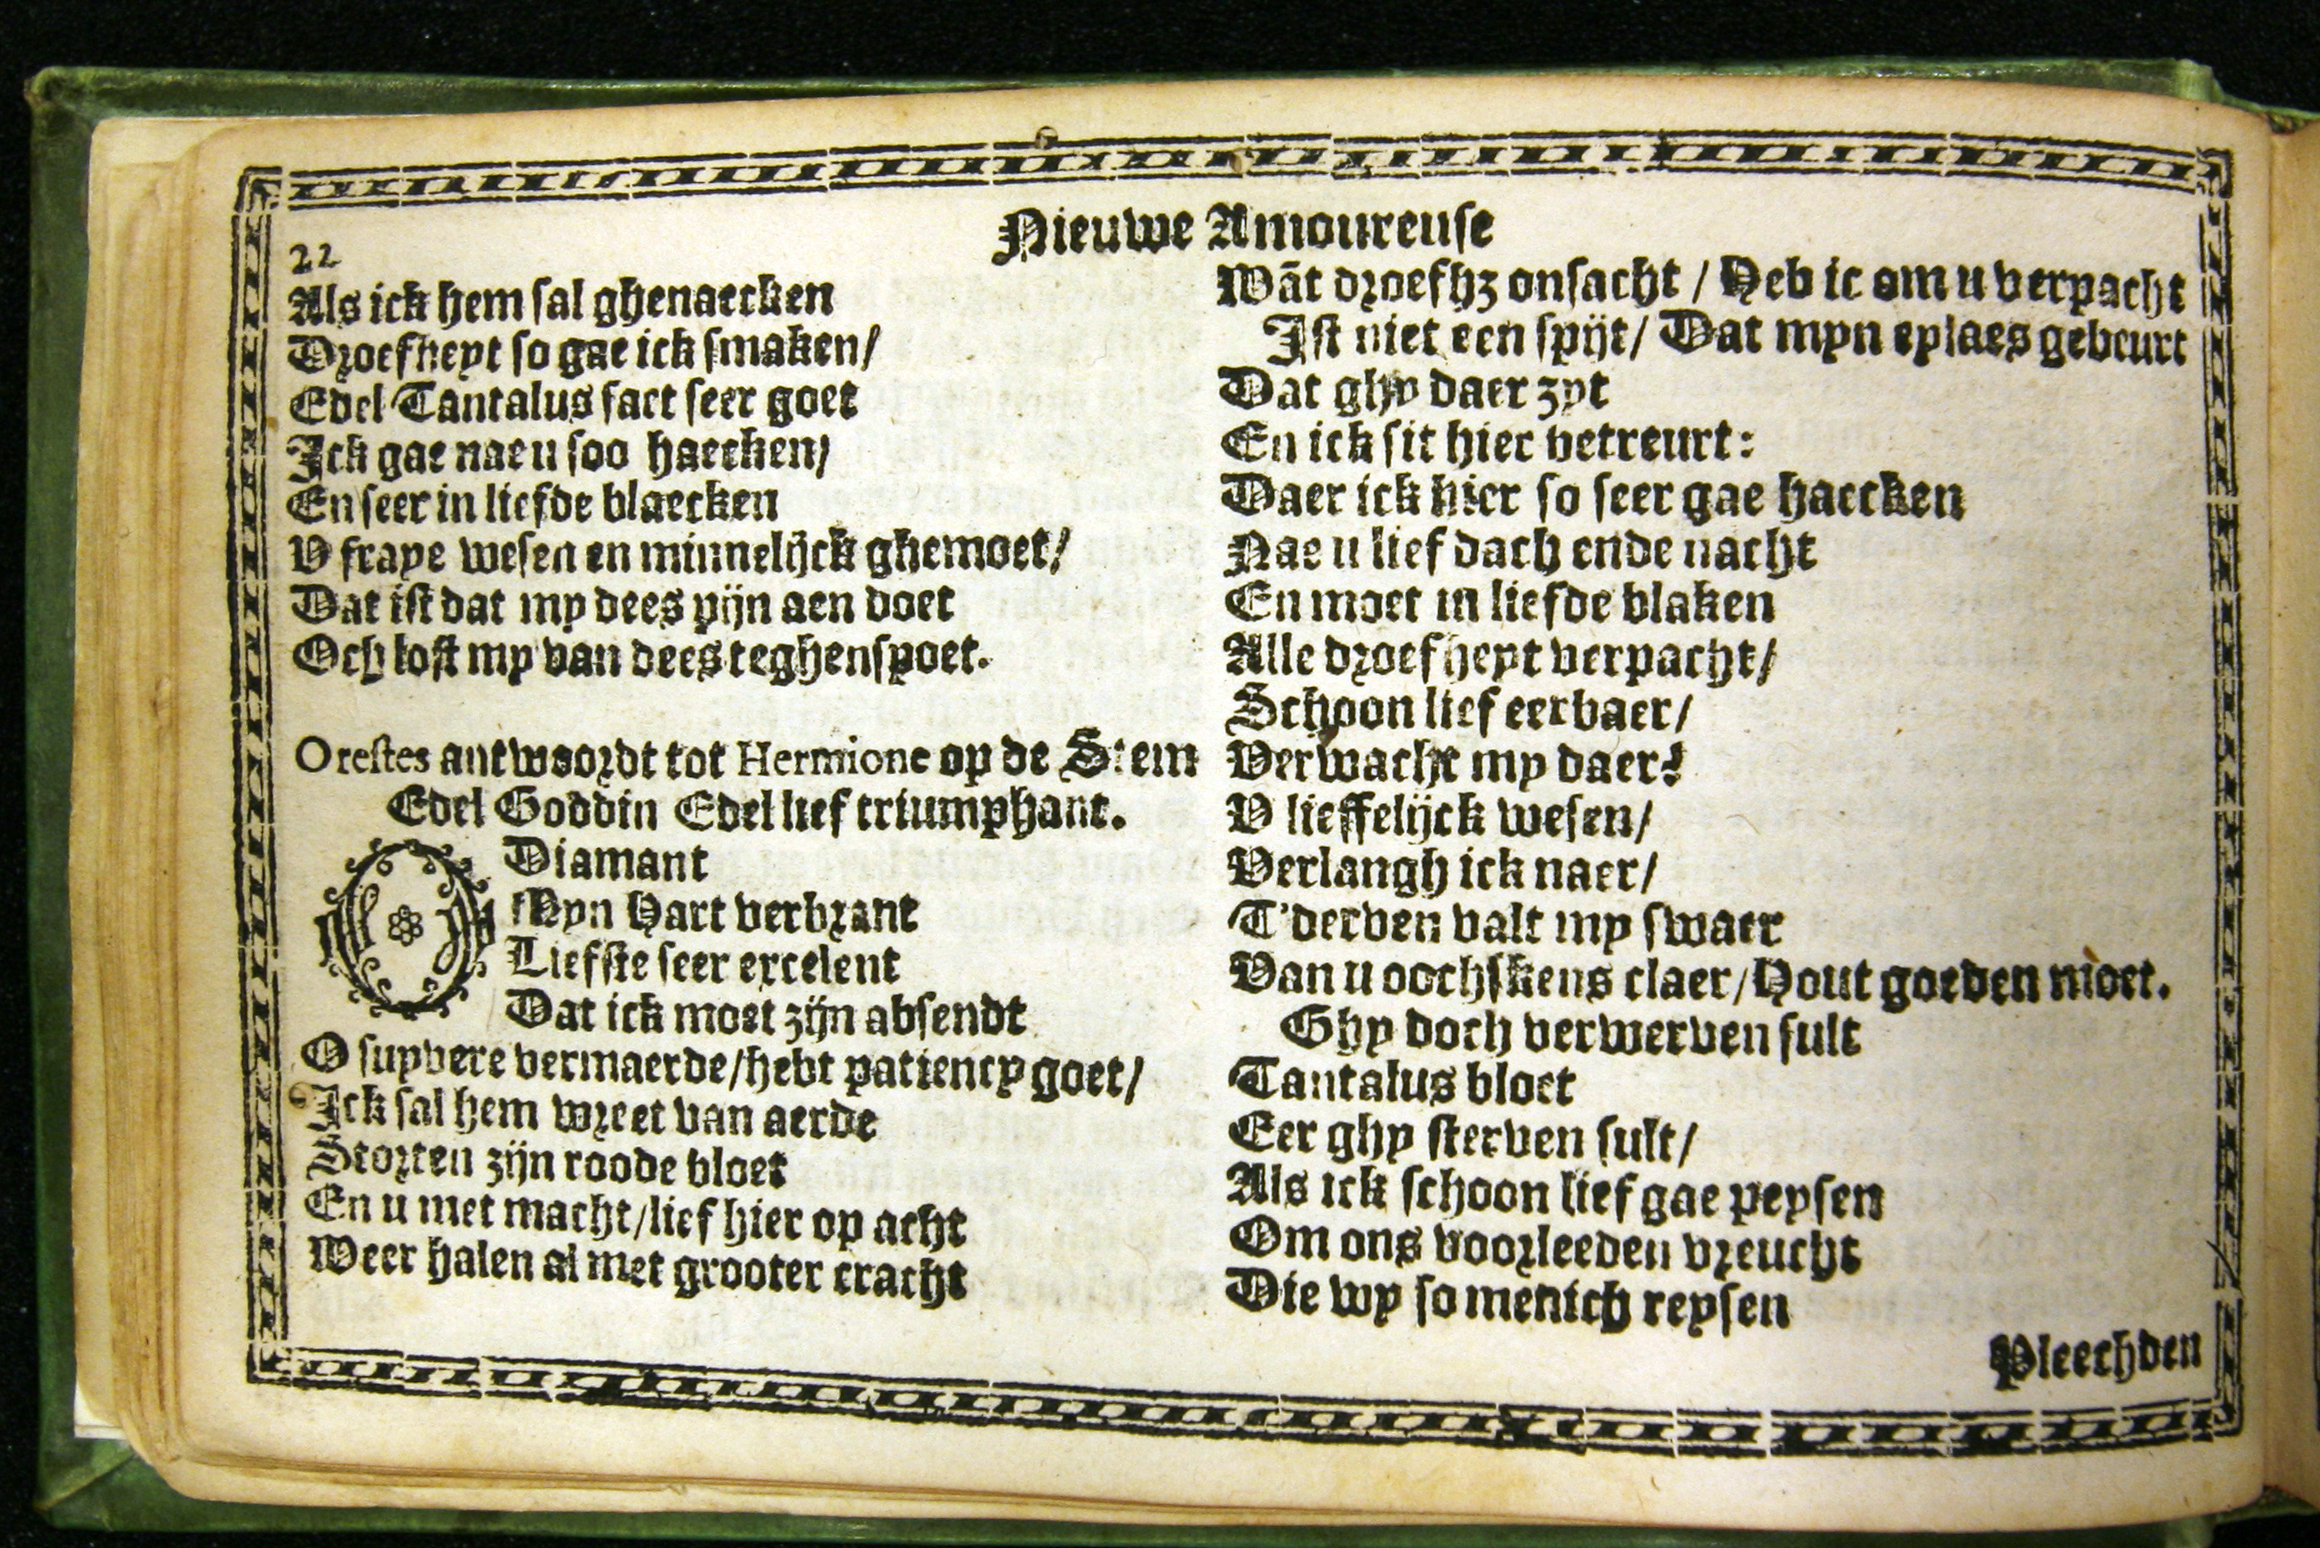 Nieuwe Amoureuse
22
Als ick hem sal ghenaecken
Droefheyt so gae ick smaken/
Edel Tantalus fact seer goet
Ick gae nae u soo haecken/
En seer in liefde blaecken
V fraye wesen en minnelijck ghemoet/
Dat ist dat my dees pijn aen doet
Och lost my van dees teghenspoet.
Orestes antwoordt tot Hermione op de Stem
Edel Goddin Edel lief triumphant.
O Diamant
Myn Hart verbrant
Liefste seer excelent
Dat ick moet zijn absendt
O suyvere vermaerde/hebt patiency goet/
Ick sal hem wreet van aerde
Storten zijn roode bloet
En u met macht/lief hier op acht
Weer halen al met grooter cracht
Wāt droefhz onsacht / Heb ic om u verpacht
Ist niet een spijt/ Dat myn eylaes gebeurt
Dat ghy daer zyt
En ick sit hier vetreurt:
Daer ick hier so seer gae haecken
Nae u lief dach ende nacht
En moet in liefde blaken
Alle droefheyt verpacht/
Schoon lief eerbaer/
Verwacht my daer!
V lieffelijck wesen/
Verlangh ick naer/
T'derven valt my swaer
Van u oochskens claer/Hout goeden moet.
Ghy doch verwerven sult
Tantalus bloet
Eer ghy sterven sult/
Als ick schoon lief gae peysen
Om ons voorleeden vreucht
Die wy so menich reysen
Pleechden